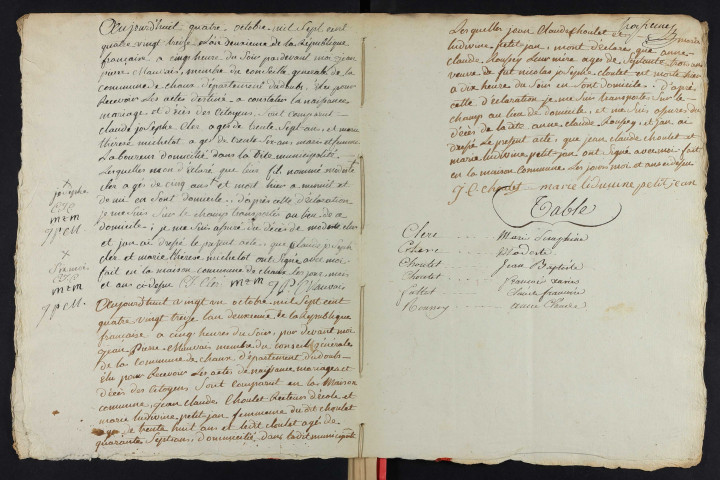 Aujourd'huit quatre octobre mil sept cent
quatre vingt treize l'an deuxieme de la République
française a cinq heure du soir par devant moi jean
pierre Mauvais, membre du conseille generale de la
commune de chaux département du doubs élu pour
Recevoir Les actes destiné a constater la naissance
mariage et décès des Citoyens, sont comparut
claude joSephe Cler ages de trente Sept ans et marie
therese michelot ages de trente six ans maries et femme
Laboureur domicilié dans la dite municipalité
Lesquelles mon déclaré que leur fils nommé modeste
cler age de cinq ans et mort hier a menuit et
demi en sont domicile. d'après cette déclaration
je me suis sur le champ transportes au lieu de
domicile; je me suis assuré du décès de modeste cler
et j'en ai dressé le présent acte, que claude joseph
cler et marie therese michelot ont Signé avec moi
fait en la maison commune de chaux Les jour mois
et ans ci-desus. C J Cler m t m J P Mauvais
joSephe
C J C
m t m
J P M.
x
C J C
m t m
J P M.
Aujourd'huit a vingt un octobre mil sept cent
quatre vingt treize l'an deuxieme de la République
française a cinq heures du Soir, par devant moi
jean Pierre Mauvais membre du conseil générale
de la commune de chaux département du doubs
élu pour Recevoir Les actes de naissance mariages et
décès des Citoyens Sont comparut en la Maison
commune, jean claude Choulet Recteur d'école et
marie ludivine petit-jan femme du dit choulet
age de trente huit ans et ledit choulet agé de
quarante Sept ans, domicilié dans la dit municipalité
Lesquelles jean Claude Choulet et marie
ludivine petit-jan, m'ont déclaré que anne
claude Roussey Leur mere ages de Septante trois ans
veuve de fut nicolas joSephe cloulet est morte hier
a dix heure du Soir en Sont Domicile. d'après
cette déclaration je me Suis transportes Sur le
champ au lieu de domicile, et me Suis assuré du
décès de la dite anne claude Roussey, et j'en ai
dressé Le présent acte, que jean claude choulet et
marie ludivine petit-jan ont Signé avec moi fait
en la maison commune Les jours mois et ans ci desus
J C choulet marie ludivine petit jean
Table
Clere Marie Seraphine
Clere Modeste
Choulet Jean Baptiste
Choulet François xavier
françoise
Roussey anne Claude